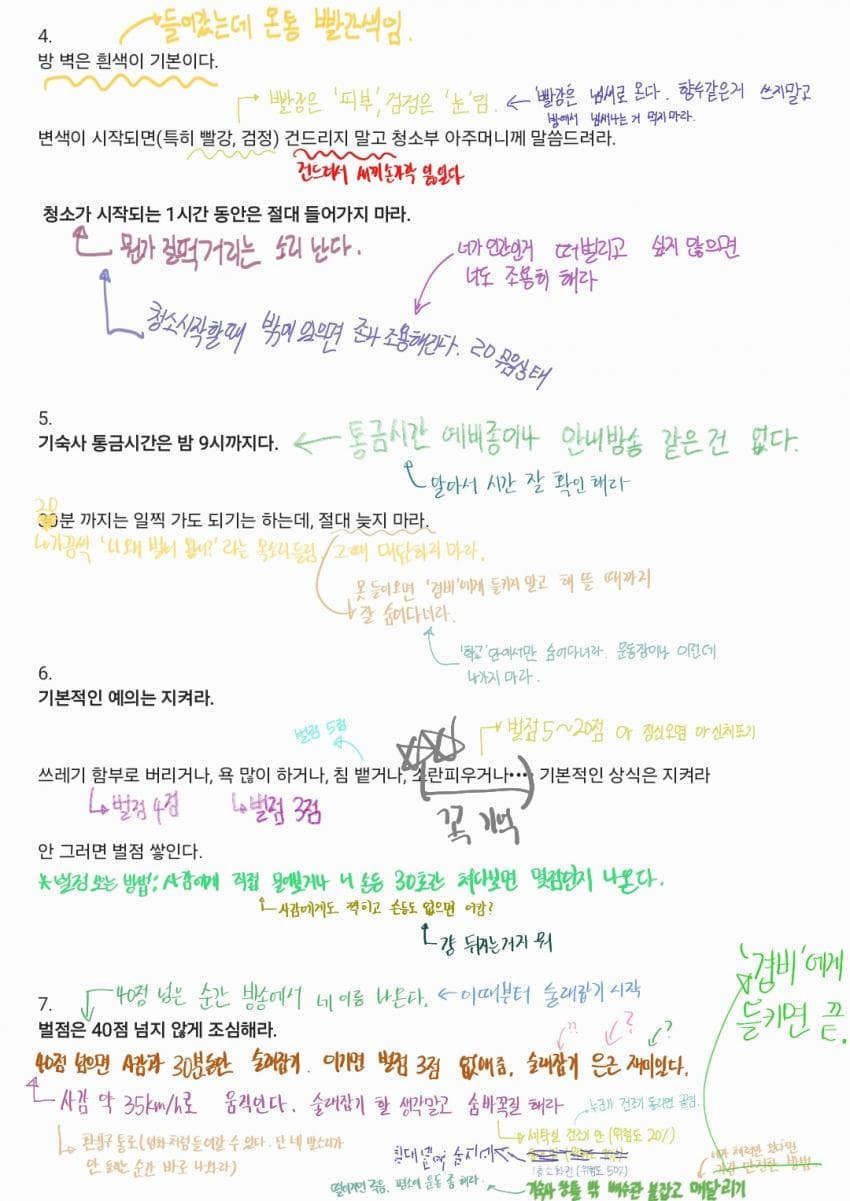 들어갔는데 온통 빨간색임.
4.
방 벽은 흰색이 기본이다.
빨강은 '피부', 검정은 '눈'임.
빨강은 냄새로 온다. 향수같은거 쓰지말고
방에서 냄새나는 거 먹지마라.
변색이 시작되면(특히 빨강, 검정) 건드리지 말고 청소부 아주머니께 말씀드려라.
건드려서 새끼손가락 잃었다
청소가 시작되는 1시간 동안은 절대 들어가지 마라.
뭔가 질척거리는 소리 난다.
너가 인간인거 떠벌리고 싶지 않으면
너도 조용히 해라
청소시작할때 밖에 있으면 존나 조용해진다. 20 무음상태
5.
기숙사 통금시간은 밤 9시까지다.
통금시간 예비종이나 안내방송 같은건 없다.
알아서 시간 잘 확인해라
20
30분 까지는 일찍 가도 되기는 하는데, 절대 늦지 마라.
가끔씩 '니 왜 빨리 왔어?' 라는 목소리들림. 그때 대답하지마라.
못 들어오면 '경비'에게 들키지 말고 해 뜰 때까지
잘 숨어다녀라.
'학교'안에서만 숨어다녀라. 운동장이나 이런데
나가지 마라.
6.
기본적인 예의는 지켜라.
벌점 5점
벌점 5~20점 or 정신오염 or 신체포기
쓰레기 함부로 버리거나, 욕 많이 하거나, 침 뱉거나, 소란피우거나···· 기본적인 상식은 지켜라
벌점 4점
벌점 3점
꼭 기억
안 그러면 벌점 쌓인다.
*벌점 보는 방법: 사감에게 직접 물어보거나 니 손등 30초간 쳐다보면 몇점인지 나온다.
사감에게도 찍히고 손등도 없으면 어캄?
걍 뒤지는거지 뭐
'경비'에게
들키면 끝.
40점 넘은 순간 방송에서 네 이름 나온다.
이때부터 술래잡기 시작
7.
벌점은 40점 넘지 않게 조심해라.
?? ? ?
40점 넘으면 사감과 30분동안 술래잡기. 이기면 벌점 3점 없애줌. 술래잡기 은근 재미있다.
사감 약 35km/h로 움직인다. 술래잡기 할 생각말고 숨바꼭질 해라
누군가 건조기 돌리면 끝임.
세탁실 건조기 안 (위험도 20%)
환풍구 통로 (영화처럼 들어갈 수 있다. 단 네 발소리가
안 들리는 순간 바로 나와라)
침대 밑에 숨지마
청소함 안 (위험도 50%)
떨어지면 죽음. 평소에 운동 좀 해라.
기숙사 창틀 밖 배수관 붙잡고 매달리기